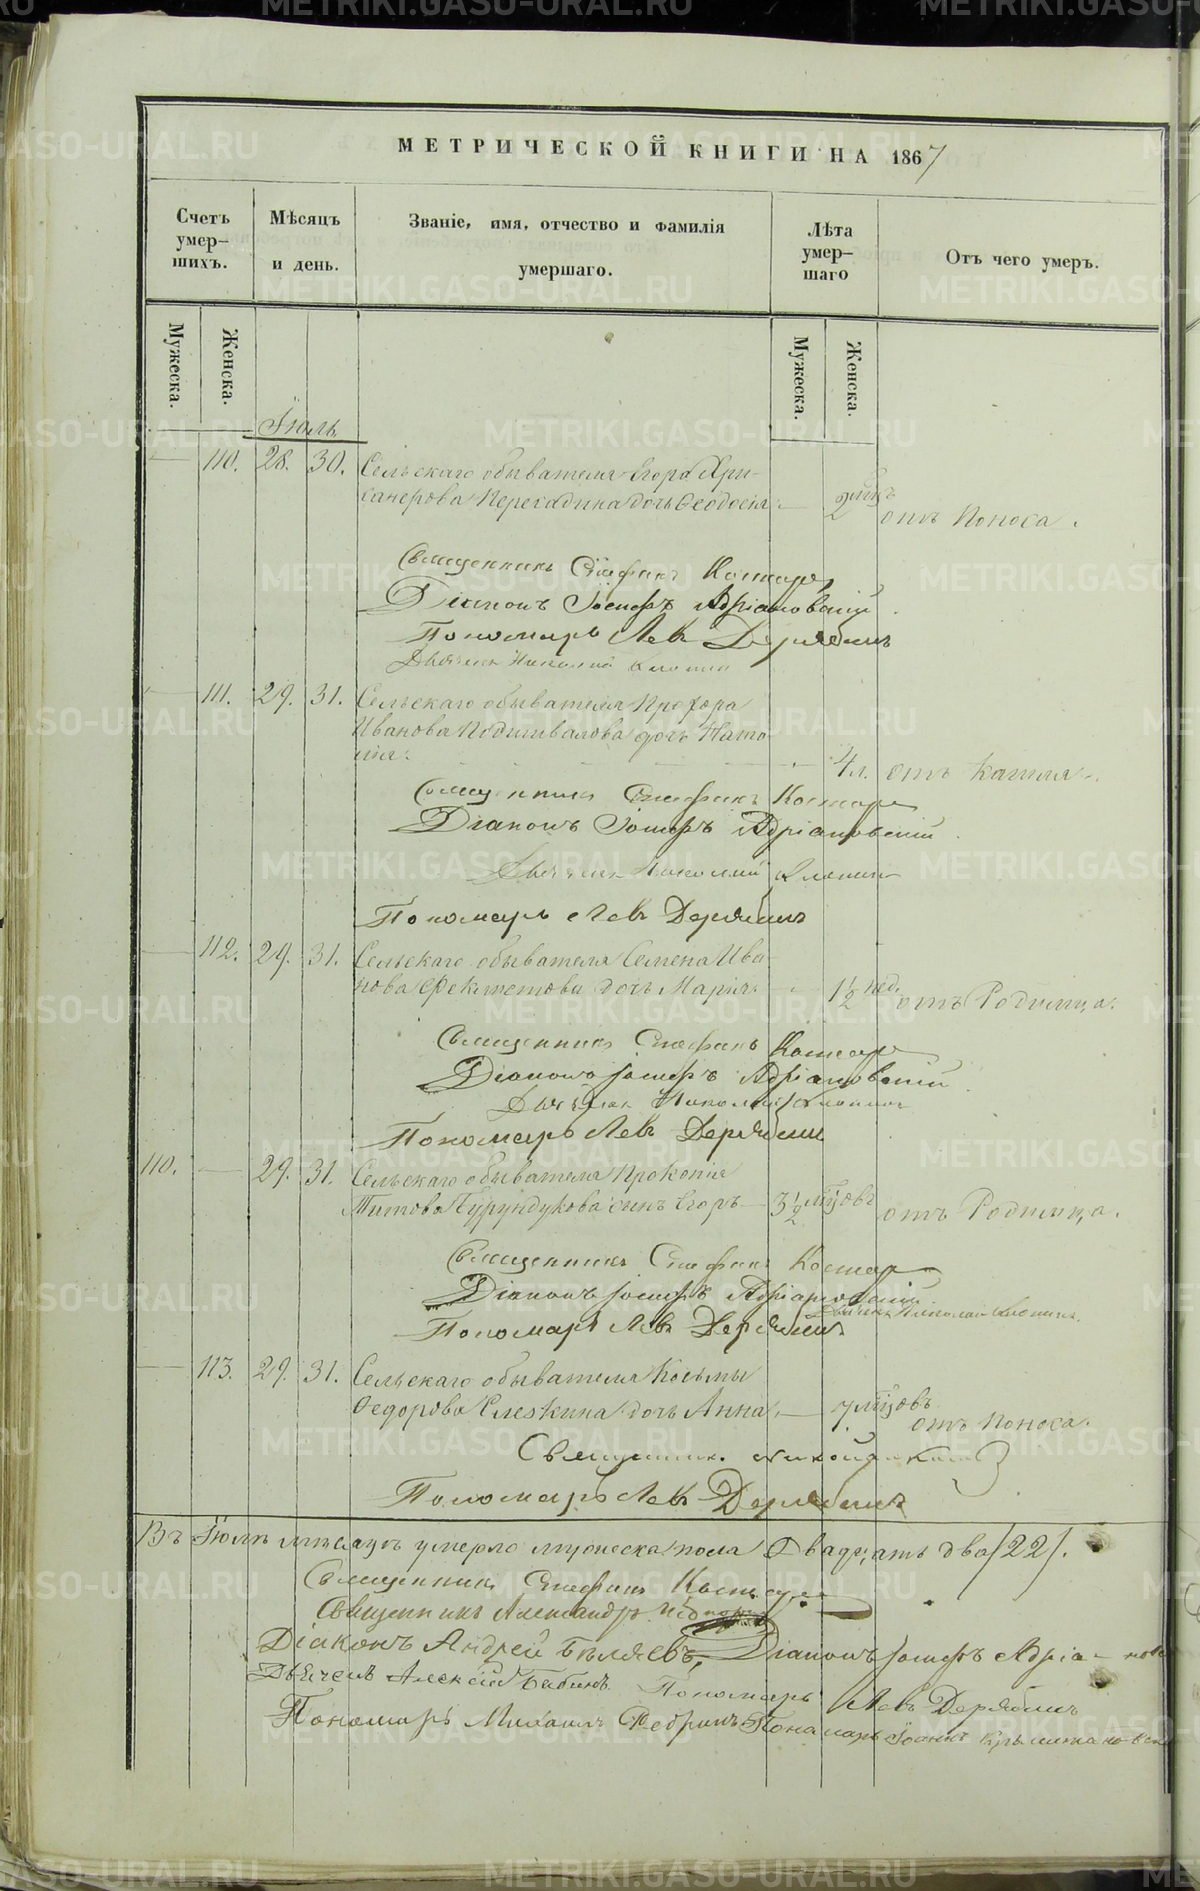 МЕТРИЧЕСКОЙ КНИГИ НА 1867
Счетъ умер-шихъ.
Мѣсяцъ и день.
Званіе, имя, отчество и фамилія умершаго.
Лѣта умер-шаго
Отъ чего умеръ.
Мужеска.
Женска.
Мужеска.
Женска.
Іюль
110. 28. 30. Сельскаго обывателя Егора Хри-
санфова Перегадина дочь Ѳеодосія 2 мц.
отъ Поноса.
Священникъ Стефанъ
Діаконъ Іосифъ Адріановскій
Пономарь Левъ Дерябинъ
Дьячекъ Николай
111. 29. 31. Сельскаго обывателя Прохора
Иванова Подшивалова дочь Ната-
лія. 4 л. отъ Кашля.
Священникъ Стефанъ
Діаконъ Іосифъ Адріановскій
Дьячекъ Николай
Пономарь Левъ Дерябинъ
112. 29. 31. Сельскаго обывателя Семена Ива-
нова дочь Марія. 1 1/2 нед.
отъ Родимца.
Священникъ Стефанъ
Діаконъ Іосифъ Адріановскій
Дьячекъ Николай
Пономарь Левъ Дерябинъ
110. 29. 31. Сельскаго обывателя Прокопія
Титова Бурундукова сынъ Егоръ 3 1/2 мцовъ
отъ Родимца.
Священникъ Стефанъ
Діаконъ Іосифъ Адріановскій
Дьячекъ Николай
Пономарь Левъ Дерябинъ
113. 29. 31. Сельскаго обывателя Косьмы
Ѳедорова дочь Анна. 7 мцовъ
отъ Поноса.
Священникъ
Пономарь Левъ Дерябинъ
Въ Іюлѣ мѣсяцѣ умерло мужеска пола Двадцать два /22/.
Священникъ Стефанъ
Священникъ Александръ
Діаконъ Андрей Бѣляевъ, Діаконъ Іосифъ Адріановс
Дьячекъ Алексій Бабинъ Пономарь Левъ Дерябинъ
Пономарь Михаилъ Пономарь Іоаннъ
METRIKI.GASO-URAL.RU